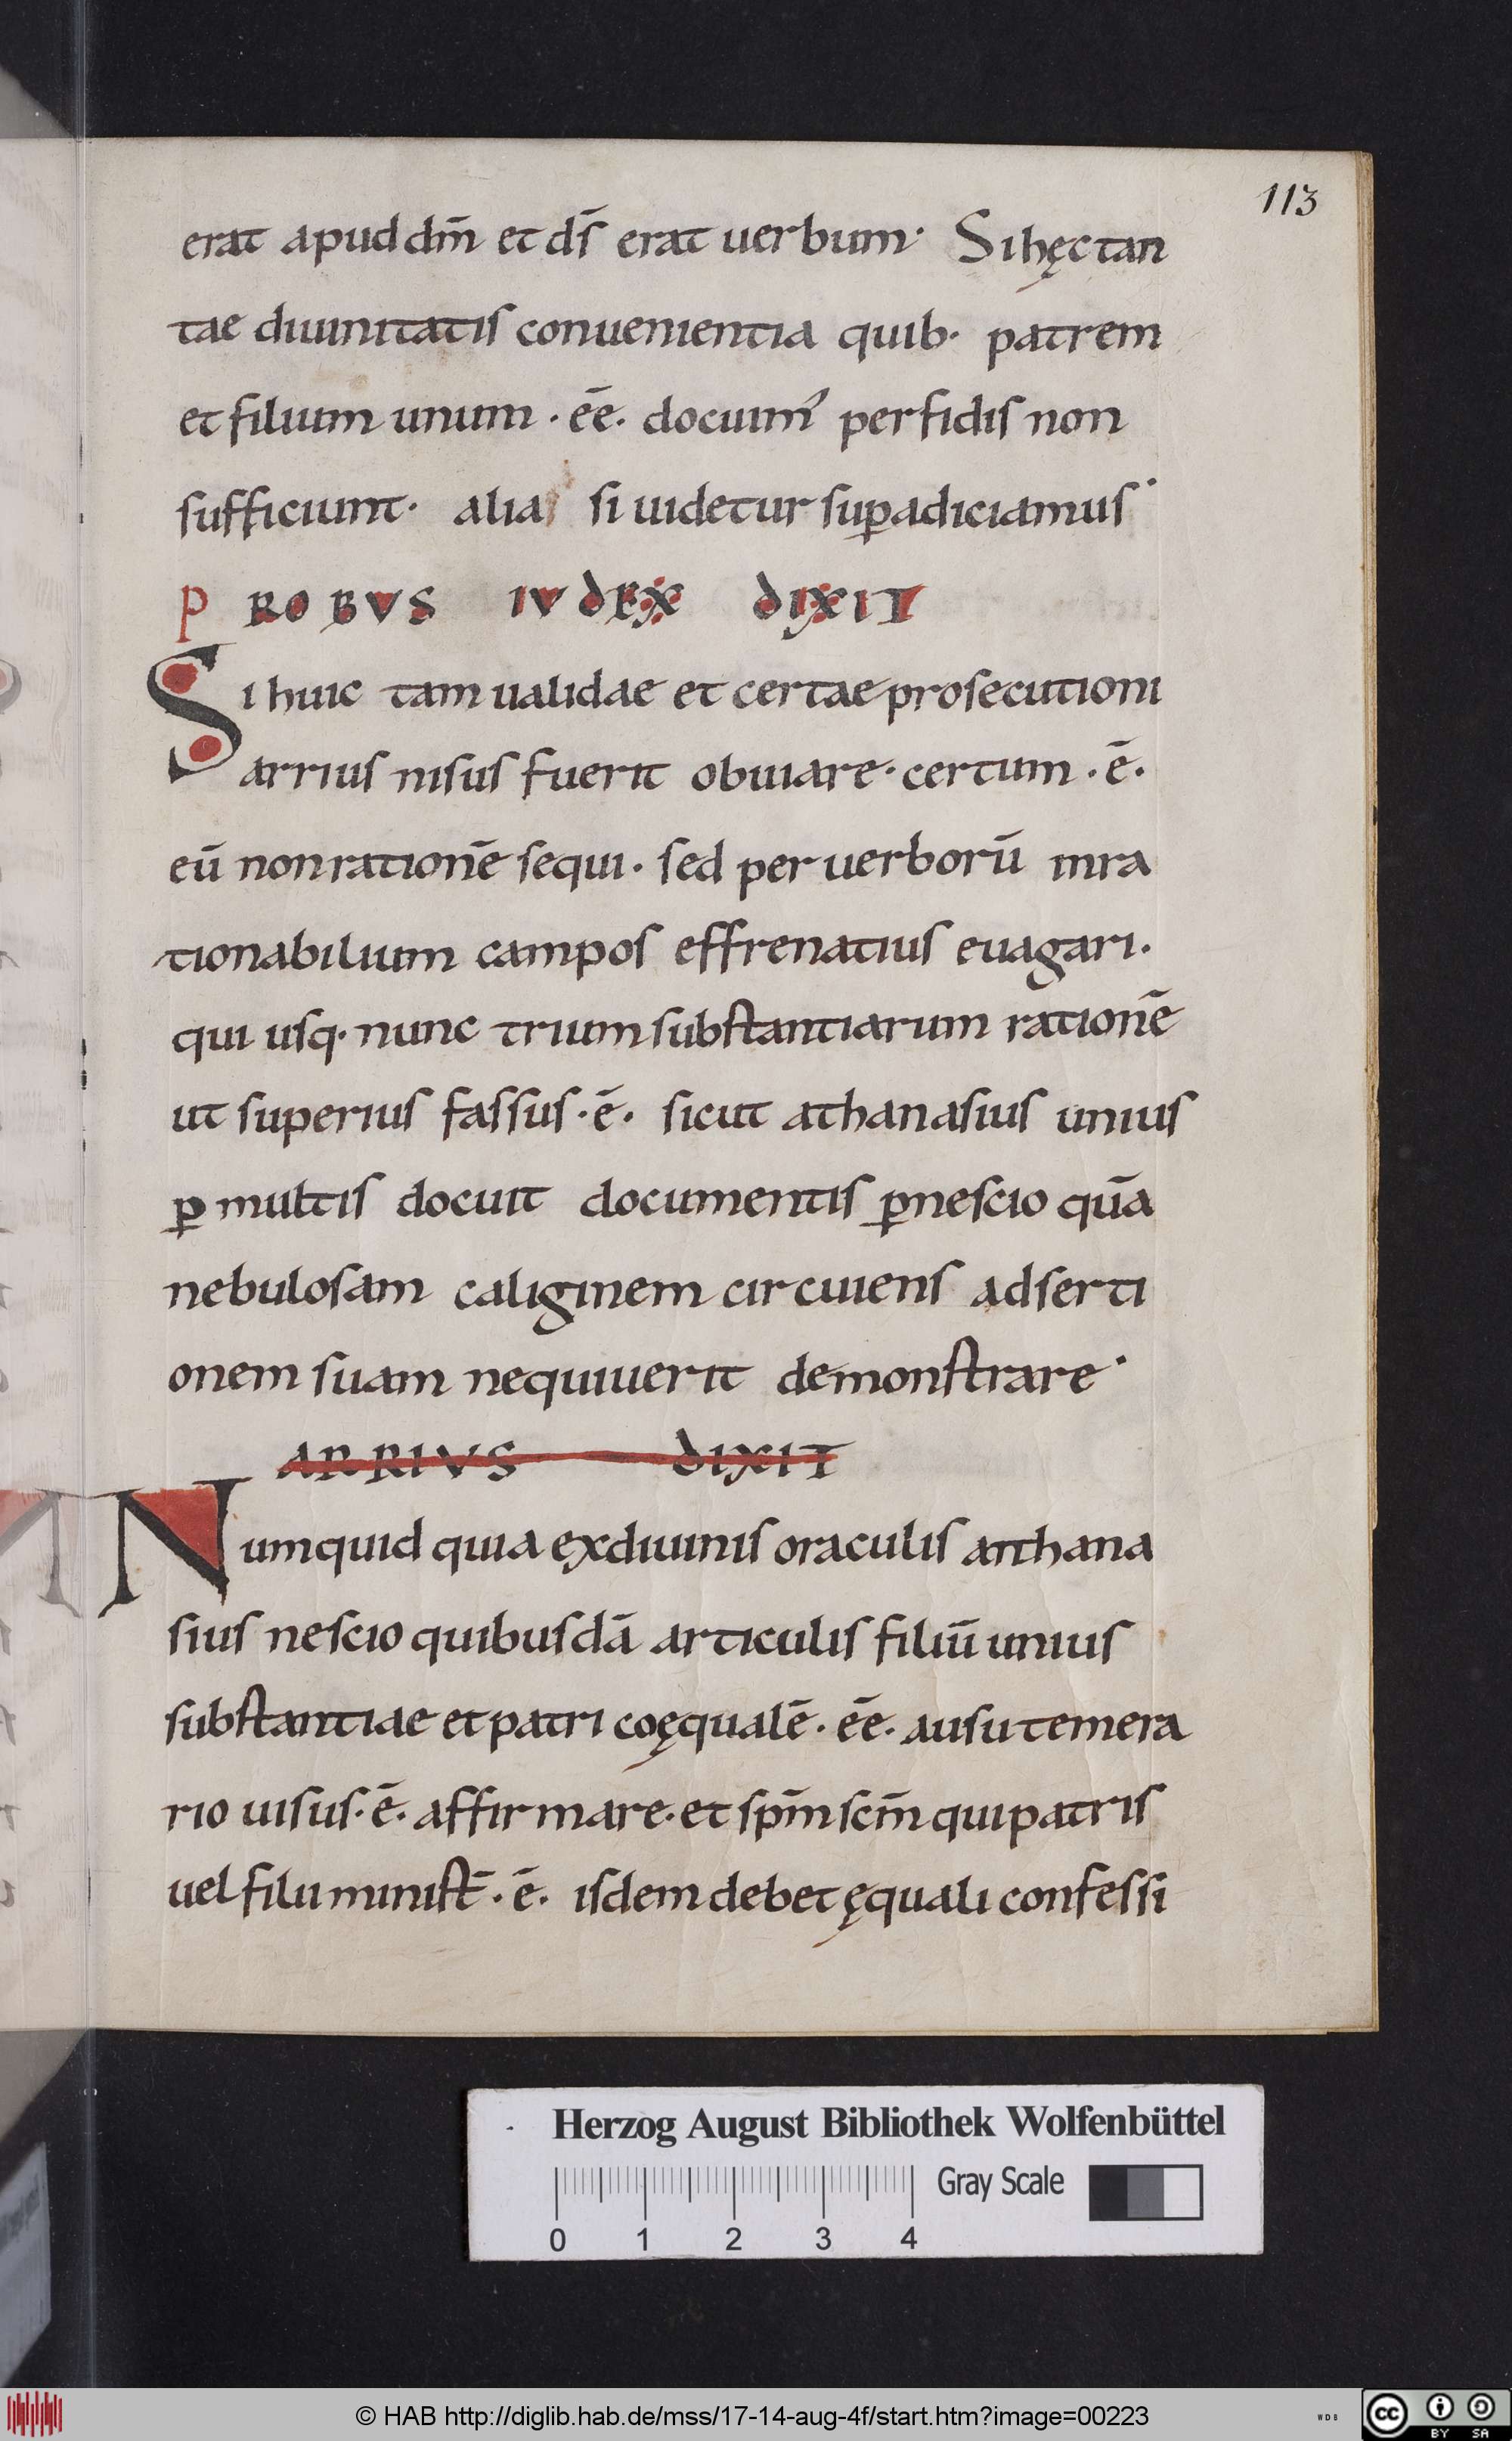 113
erat apud dm̄ et ds̄ erat uerbum· Si hęc tan
tae diuinitatis conuenientia quib· patrem
et filium unum · ēē· docuim' perfidis non
sufficiunt· alia si uidetur suꝑadiciamus·
PROBVS IVDEX DIXIT
Si huic tam ualidae et certae prosecutioni
arrius nisus fuerit obuiare· certum · ē·
eū non rationē sequi· sed per uerborū inra
tionabilium campos effrenatius euagari·
qui usq· nunc trium substantiarum rationē
ut superius fassus · ē· sicut athanasius unius
ꝑ multis docuit documentis ꝑ nescio quā
nebulosam caliginem circuiens adserti
onem suam nequiuerit demonstrare·
ARRIVS DIXIT
Numquid quia ex diuinis oraculis anthana
sius nescio quibusdā articulis filiū unius
substantiae et patri coęqualē · ēē· ausu temera
rio uisus· ē· affirmare· et spm̄ scm̄ qui patris
uel filii minist̄ · ē· isdem debet ęquali confessi
Herzog August Bibliothek Wolfenbüttel
Gray Scale
0 1 2 3 4
© HAB http://diglib.hab.de/mss/17-14-aug-4f/start.htm?image=00223
WDB
cc BY SA